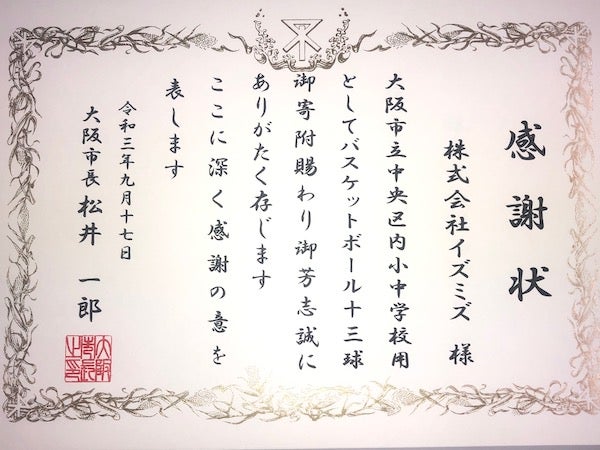 感謝状
株式会社イズミズ 様
大阪市立中央区内小中学校用
としてバスケットボール十三球
御寄附賜わり御芳志誠に
ありがたく存じます
ここに深く感謝の意を
表します
令和三年九月十七日
大阪市長 松井 一郎
大阪市長之印